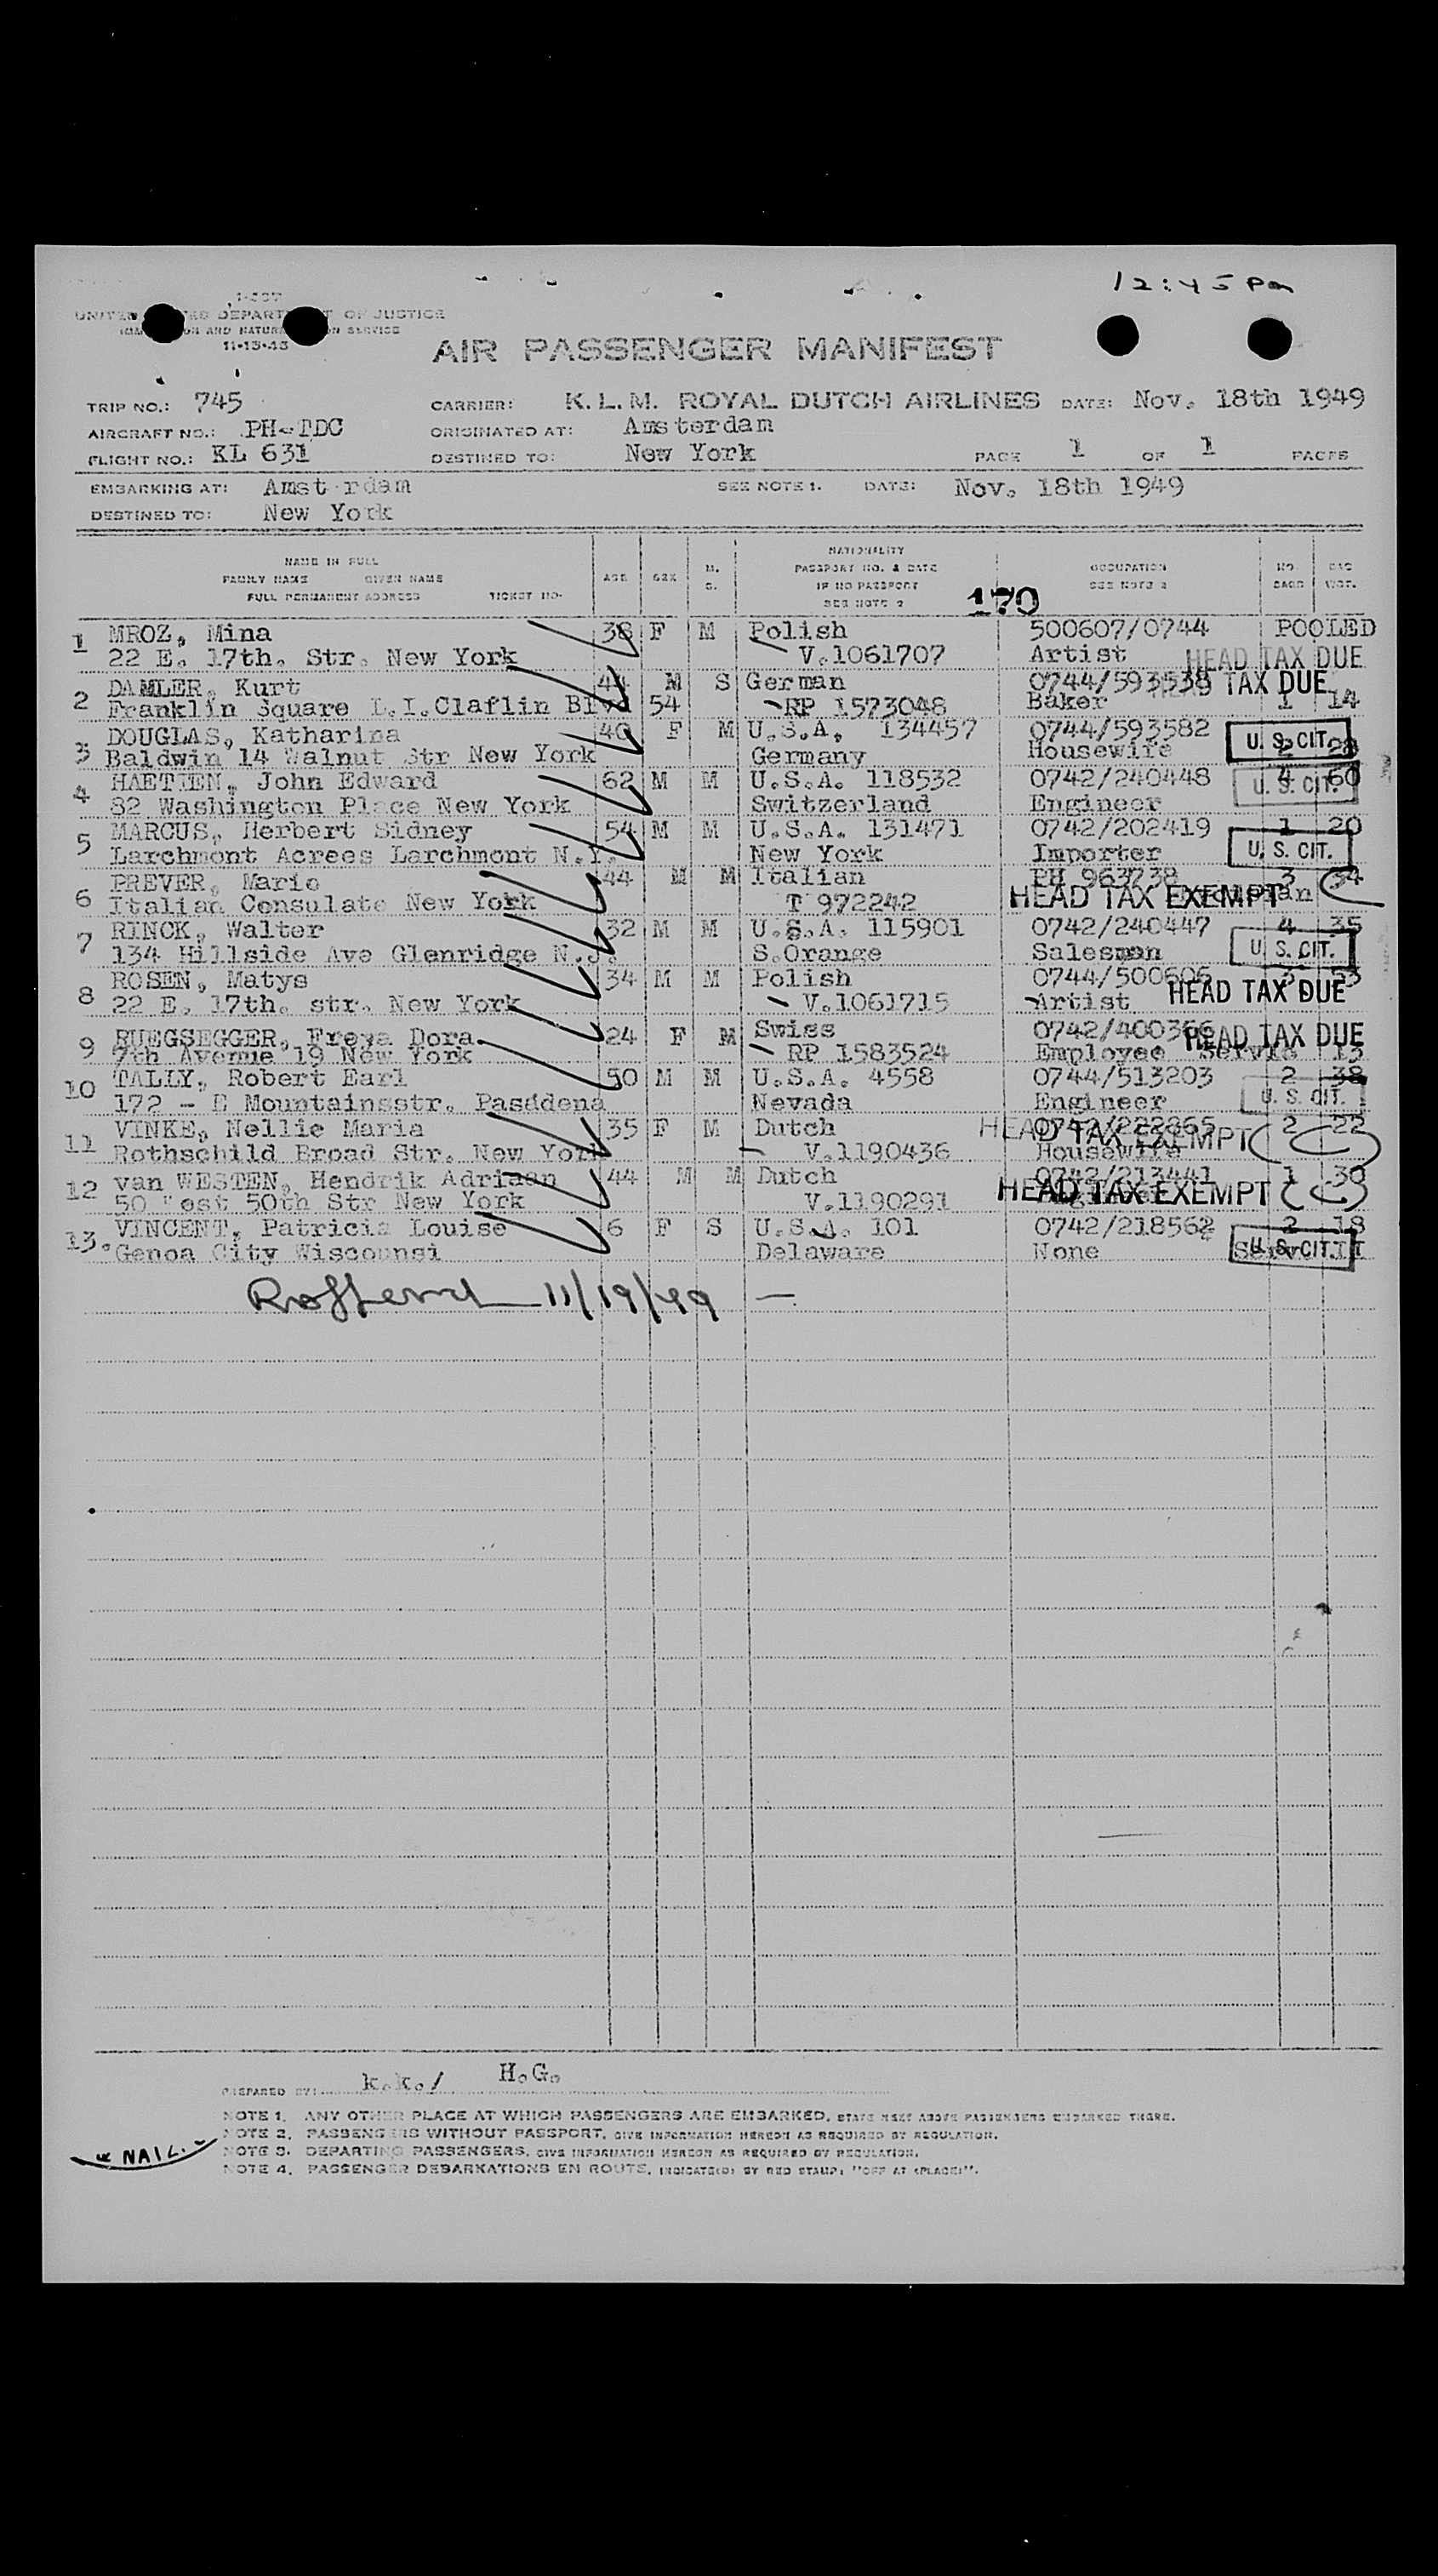 12:45 Pm
I-507
UNITED STATES DEPARTMENT OF JUSTICE
IMMIGRATION AND NATURALIZATION SERVICE
11-15-43
AIR PASSENGER MANIFEST
TRIP NO.: 745 CARRIER: K.L.M. ROYAL DUTCH AIRLINES DATE: Nov. 18th 1949
AIRCRAFT NO.: PH-TDC ORIGINATED AT: Amsterdam
FLIGHT NO.: KL 631 DESTINED TO: New York PAGE 1 OF 1 PAGES
EMBARKING AT: Amst rdam SEE NOTE 1. DATE: Nov. 18th 1949
DESTINED TO: New York
NAME IN FULL
FAMILY NAME GIVEN NAME
FULL PERMANENT ADDRESS TICKET NO.
AGE SEX M. S.
NATIONALITY
PASSPORT NO. & DATE
IF NO PASSPORT
SEE NOTE 2
OCCUPATION
SEE NOTE 2
NO. BAGS BAG WGT.
170
1 MROZ, Mina 38 F M Polish 500607/0744 POOLED
22 E. 17th. Str. New York V.1061707 Artist HEAD TAX DUE
2 DAMLER, Kurt 44 M S German 0744/593538 TAX DUE
Franklin Square L.I.Claflin Blvd 54 RP 1573048 Baker 1 14
3 DOUGLAS, Katharina 40 F M U.S.A. 134457 0744/593582
Baldwin 14 Walnut Str New York Germany Housewife 2 28 U. S. CIT.
4 HAETTEN, John Edward 62 M M U.S.A. 118532 0742/240448 4 60
82 Washington Place New York Switzerland Engineer U. S. CIT.
5 MARCUS, Herbert Sidney 54 M M U.S.A. 131471 0742/202419 1 20
Larchmont Acrees Larchmont N.Y. New York Importer U. S. CIT.
6 PREVER, Mario 44 M M Italian PH 963738 3 34
Italian Consulate New York T 972242 HEAD TAX EXEMPT
7 RINCK, Walter 32 M M U.S.A. 115901 0742/240447 4 35
134 Hillside Ave Glenridge N.J. S.Orange Salesman U. S. CIT.
8 ROSEN, Matys 34 M M Polish 0744/500606 3 53
22 E. 17th. str. New York V.1061715 Artist HEAD TAX DUE
9 RUEGSEGGER, Freya Dora. 24 F M Swiss 0742/400366 HEAD TAX DUE
7th Avenue 19 New York RP 1583524 Employee Servis 13
10 TALLY, Robert Earl 50 M M U.S.A. 4558 0744/513203 2 38
172 - E Mountainsstr. Pasadena Nevada Engineer U. S. CIT.
11 VINKE, Nellie Maria 35 F M Dutch 0742/222865 2 22
Rothschild Broad Str. New York V.1190436 Housewife HEAD TAX EXEMPT
12 van WESTEN, Hendrik Adriaan 44 M M Dutch 0742/213441 1 30
50 West 50th Str New York V.1190291 HEAD TAX EXEMPT
13. VINCENT, Patricia Louise 6 F S U.S.A. 101 0742/218562 2 18
Genoa City Wiscounsi Delaware None U. S. CIT.
11/19/49 —
PREPARED BY: k.k./ H.G.
NOTE 1. ANY OTHER PLACE AT WHICH PASSENGERS ARE EMBARKED, STATE NEXT ABOVE PASSENGERS EMBARKED THERE.
NOTE 2. PASSENGERS WITHOUT PASSPORT, GIVE INFORMATION HEREON AS REQUIRED BY REGULATION.
NOTE 3. DEPARTING PASSENGERS, GIVE INFORMATION HEREON AS REQUIRED BY REGULATION.
NOTE 4. PASSENGER DEBARKATIONS EN ROUTE, INDICATE(D) BY RED STAMP: "OFF AT (PLACE)".
NAIL.